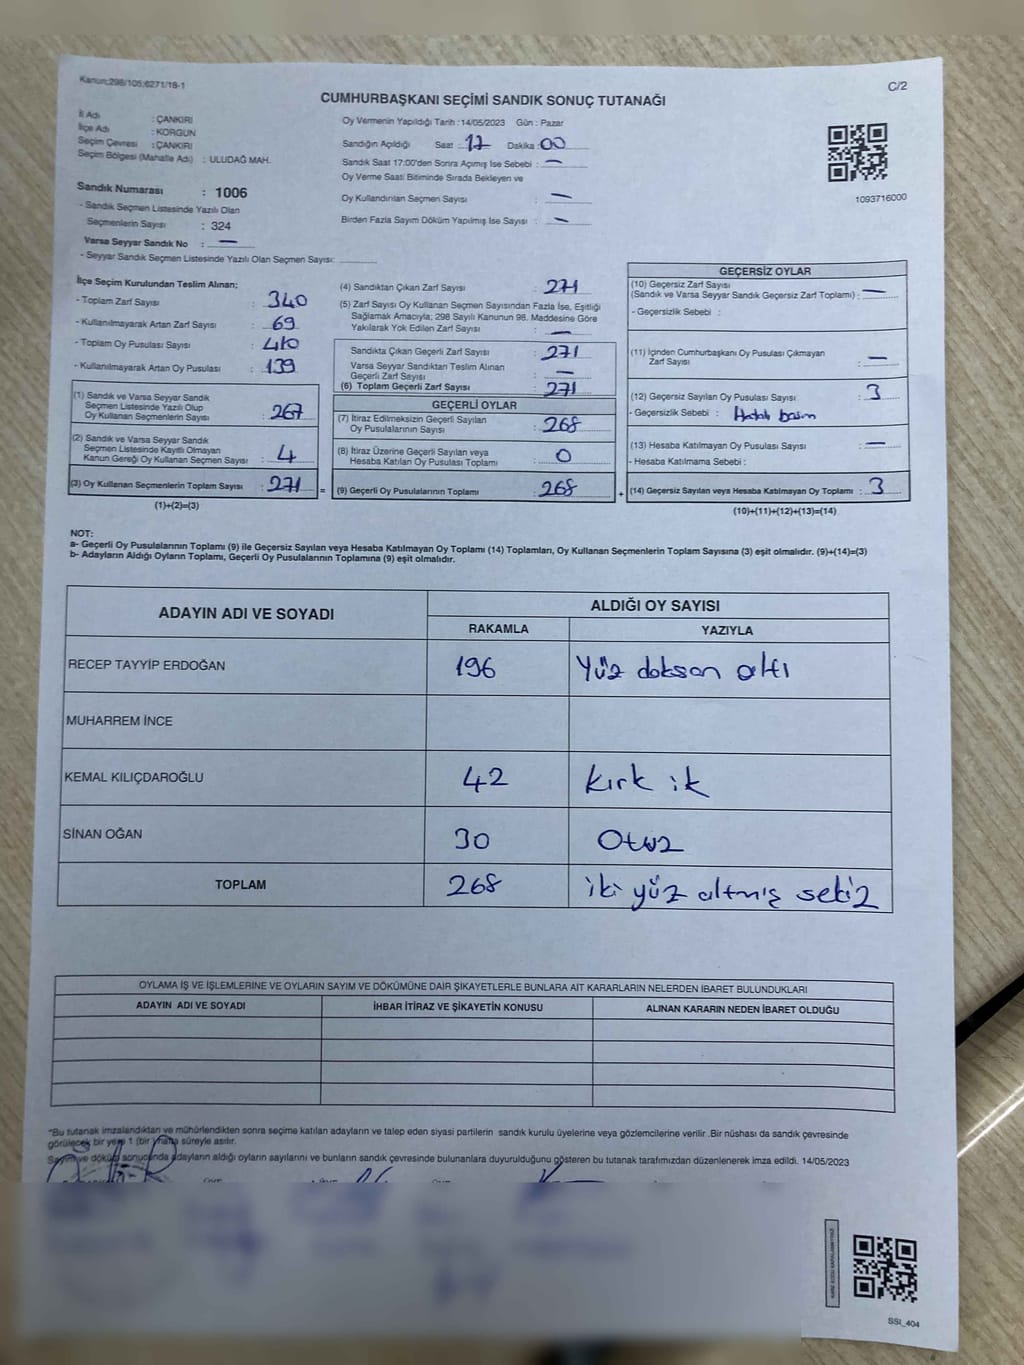 Kanun:298/105;6271/18-1
C/2
CUMHURBAŞKANI SEÇİMİ SANDIK SONUÇ TUTANAĞI
İl Adı : ÇANKIRI
İlçe Adı : KORGUN
Seçim Çevresi : ÇANKIRI
Seçim Bölgesi (Mahalle Adı) : ULUDAĞ MAH.
Sandık Numarası : 1006
- Sandık Seçmen Listesinde Yazılı Olan
Seçmenlerin Sayısı : 324
Varsa Seyyar Sandık No : —
- Seyyar Sandık Seçmen Listesinde Yazılı Olan Seçmen Sayısı:
Oy Vermenin Yapıldığı Tarih : 14/05/2023 Gün : Pazar
Sandığın Açıldığı Saat : 17 Dakika : 00
Sandık Saat 17:00'den Sonra Açımış İse Sebebi : —
Oy Verme Saati Bitiminde Sırada Bekleyen ve
Oy Kullandırılan Seçmen Sayısı : —
Birden Fazla Sayım Döküm Yapılmış İse Sayısı : —
1093716000
İlçe Seçim Kurulundan Teslim Alınan;
- Toplam Zarf Sayısı : 340
- Kullanılmayarak Artan Zarf Sayısı : 69
- Toplam Oy Pusulası Sayısı : 410
- Kullanılmayarak Artan Oy Pusulası : 139
(1) Sandık ve Varsa Seyyar Sandık
Seçmen Listesinde Yazılı Olup
Oy Kullanan Seçmenlerin Sayısı : 267
(2) Sandık ve Varsa Seyyar Sandık
Seçmen Listesinde Kayıtlı Olmayan
Kanun Gereği Oy Kullanan Seçmen Sayısı : 4
(3) Oy Kullanan Seçmenlerin Toplam Sayısı : 271 =
(1)+(2)=(3)
(4) Sandıktan Çıkan Zarf Sayısı : 271
(5) Zarf Sayısı Oy Kullanan Seçmen Sayısından Fazla İse, Eşitliği
Sağlamak Amacıyla; 298 Sayılı Kanunun 98. Maddesine Göre
Yakılarak Yok Edilen Zarf Sayısı : —
Sandıkta Çıkan Geçerli Zarf Sayısı : 271
Varsa Seyyar Sandıktan Teslim Alınan
Geçerli Zarf Sayısı : —
(6) Toplam Geçerli Zarf Sayısı : 271
GEÇERLİ OYLAR
(7) İtiraz Edilmeksizin Geçerli Sayılan
Oy Pusulalarının Sayısı : 268
(8) İtiraz Üzerine Geçerli Sayılan veya
Hesaba Katılan Oy Pusulası Toplamı : 0
(9) Geçerli Oy Pusulalarının Toplamı : 268 +
GEÇERSİZ OYLAR
(10) Geçersiz Zarf Sayısı
(Sandık ve Varsa Seyyar Sandık Geçersiz Zarf Toplamı) : —
- Geçersizlik Sebebi :
(11) İçinden Cumhurbaşkanı Oy Pusulası Çıkmayan
Zarf Sayısı : —
(12) Geçersiz Sayılan Oy Pusulası Sayısı : 3
- Geçersizlik Sebebi : Hatalı basım
(13) Hesaba Katılmayan Oy Pusulası Sayısı : —
- Hesaba Katılmama Sebebi :
(14) Geçersiz Sayılan veya Hesaba Katılmayan Oy Toplamı : 3
(10)+(11)+(12)+(13)=(14)
NOT:
a- Geçerli Oy Pusulalarının Toplamı (9) ile Geçersiz Sayılan veya Hesaba Katılmayan Oy Toplamı (14) Toplamları, Oy Kullanan Seçmenlerin Toplam Sayısına (3) eşit olmalıdır. (9)+(14)=(3)
b- Adayların Aldığı Oyların Toplamı, Geçerli Oy Pusulalarının Toplamına (9) eşit olmalıdır.
ADAYIN ADI VE SOYADI
ALDIĞI OY SAYISI
RAKAMLA YAZIYLA
RECEP TAYYİP ERDOĞAN 196 Yüz doksan altı
MUHARREM İNCE
KEMAL KILIÇDAROĞLU 42 kırk ik
SİNAN OĞAN 30 Otuz
TOPLAM 268 iki yüz altmış sekiz
OYLAMA İŞ VE İŞLEMLERİNE VE OYLARIN SAYIM VE DÖKÜMÜNE DAİR ŞİKAYETLERLE BUNLARA AİT KARARLARIN NELERDEN İBARET BULUNDUKLARI
ADAYIN ADI VE SOYADI İHBAR İTİRAZ VE ŞİKAYETİN KONUSU ALINAN KARARIN NEDEN İBARET OLDUĞU
"Bu tutanak imzalandıktan ve mühürlendikten sonra seçime katılan adayların ve talep eden siyasi partilerin sandık kurulu üyelerine veya gözlemcilerine verilir .Bir nüshası da sandık çevresinde
görülecek bir yere 1 (bir) hafta süreyle asılır.
Sayım ve döküm sonucunda adayların aldığı oyların sayılarını ve bunların sandık çevresinde bulunanlara duyurulduğunu gösteren bu tutanak tarafımızdan düzenlenerek imza edildi. 14/05/2023
SSI_404